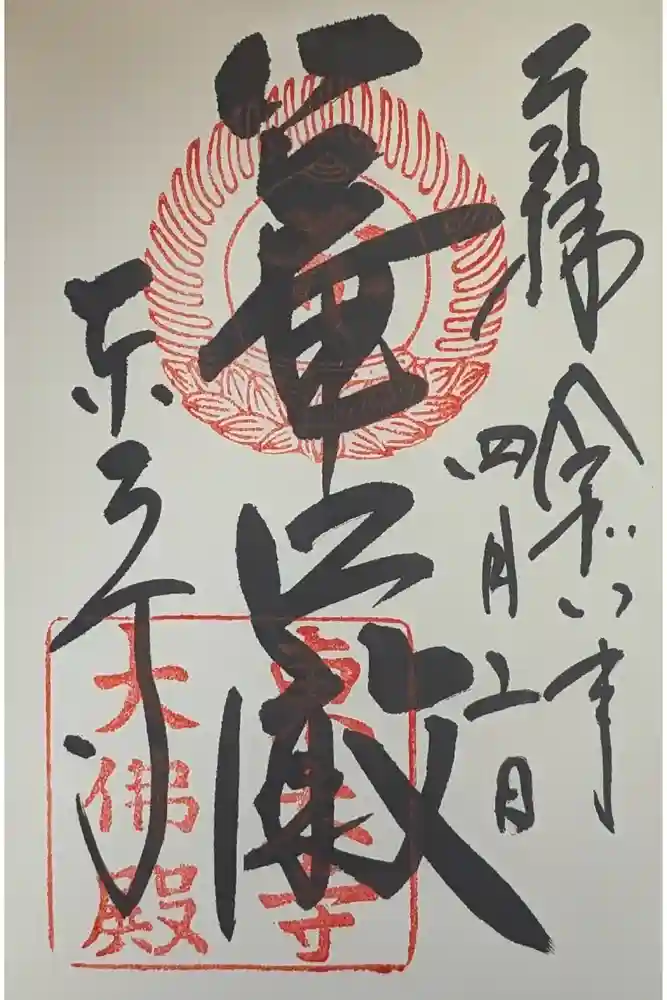 奉拝
令和六年
四月七日
華厳
東大寺
東大寺
大佛殿